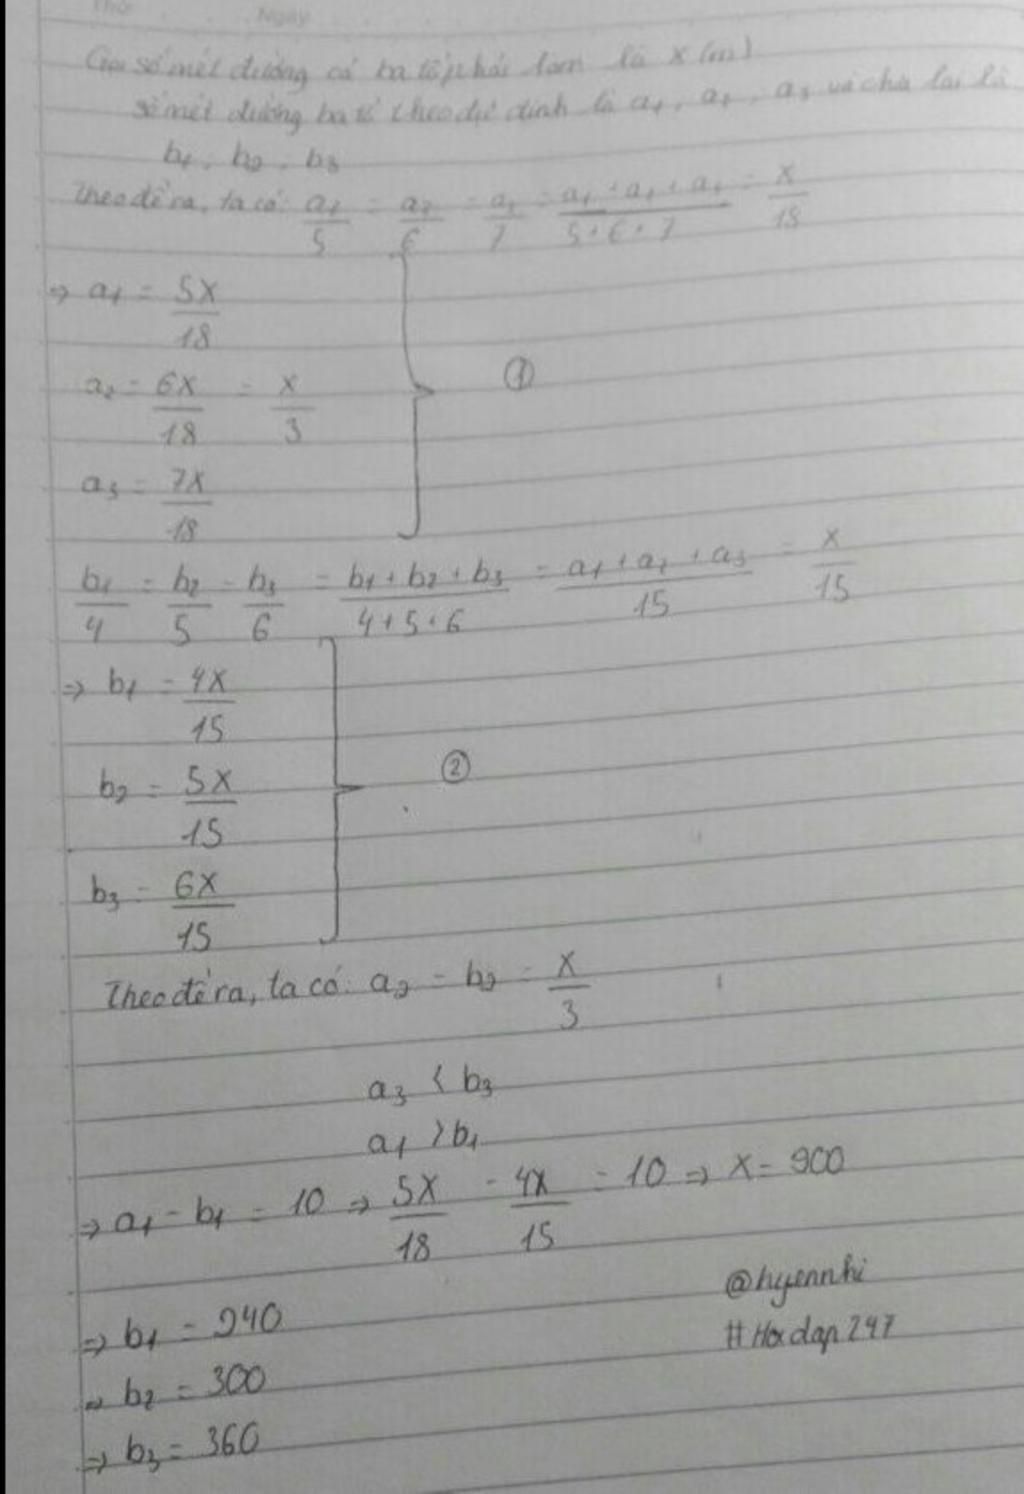 Thứ Ngày
Gọi số mét đường cả ba tổ phải làm là x (m)
số mét đường ba tổ theo dự định là a₁, a₂, a₃ và chia lại là
b₁, b₂, b₃
Theo đề ra, ta có: a₁/5 = a₂/6 = a₃/7 = (a₁ + a₂ + a₃)/(5+6+7) = x/18
⇒ a₁ = 5x/18
a₂ = 6x/18 = x/3 ①
a₃ = 7x/18
b₁/4 = b₂/5 = b₃/6 = (b₁ + b₂ + b₃)/(4+5+6) = (a₁ + a₂ + a₃)/15 = x/15
⇒ b₁ = 4x/15
b₂ = 5x/15 ②
b₃ = 6x/15
Theo đề ra, ta có: a₂ = b₂ = x/3
a₃ < b₃
a₁ > b₁
⇒ a₁ - b₁ = 10 ⇒ 5x/18 - 4x/15 = 10 ⇒ x = 900
@hyennhi
⇒ b₁ = 240
#Hoidap247
⇒ b₂ = 300
⇒ b₃ = 360